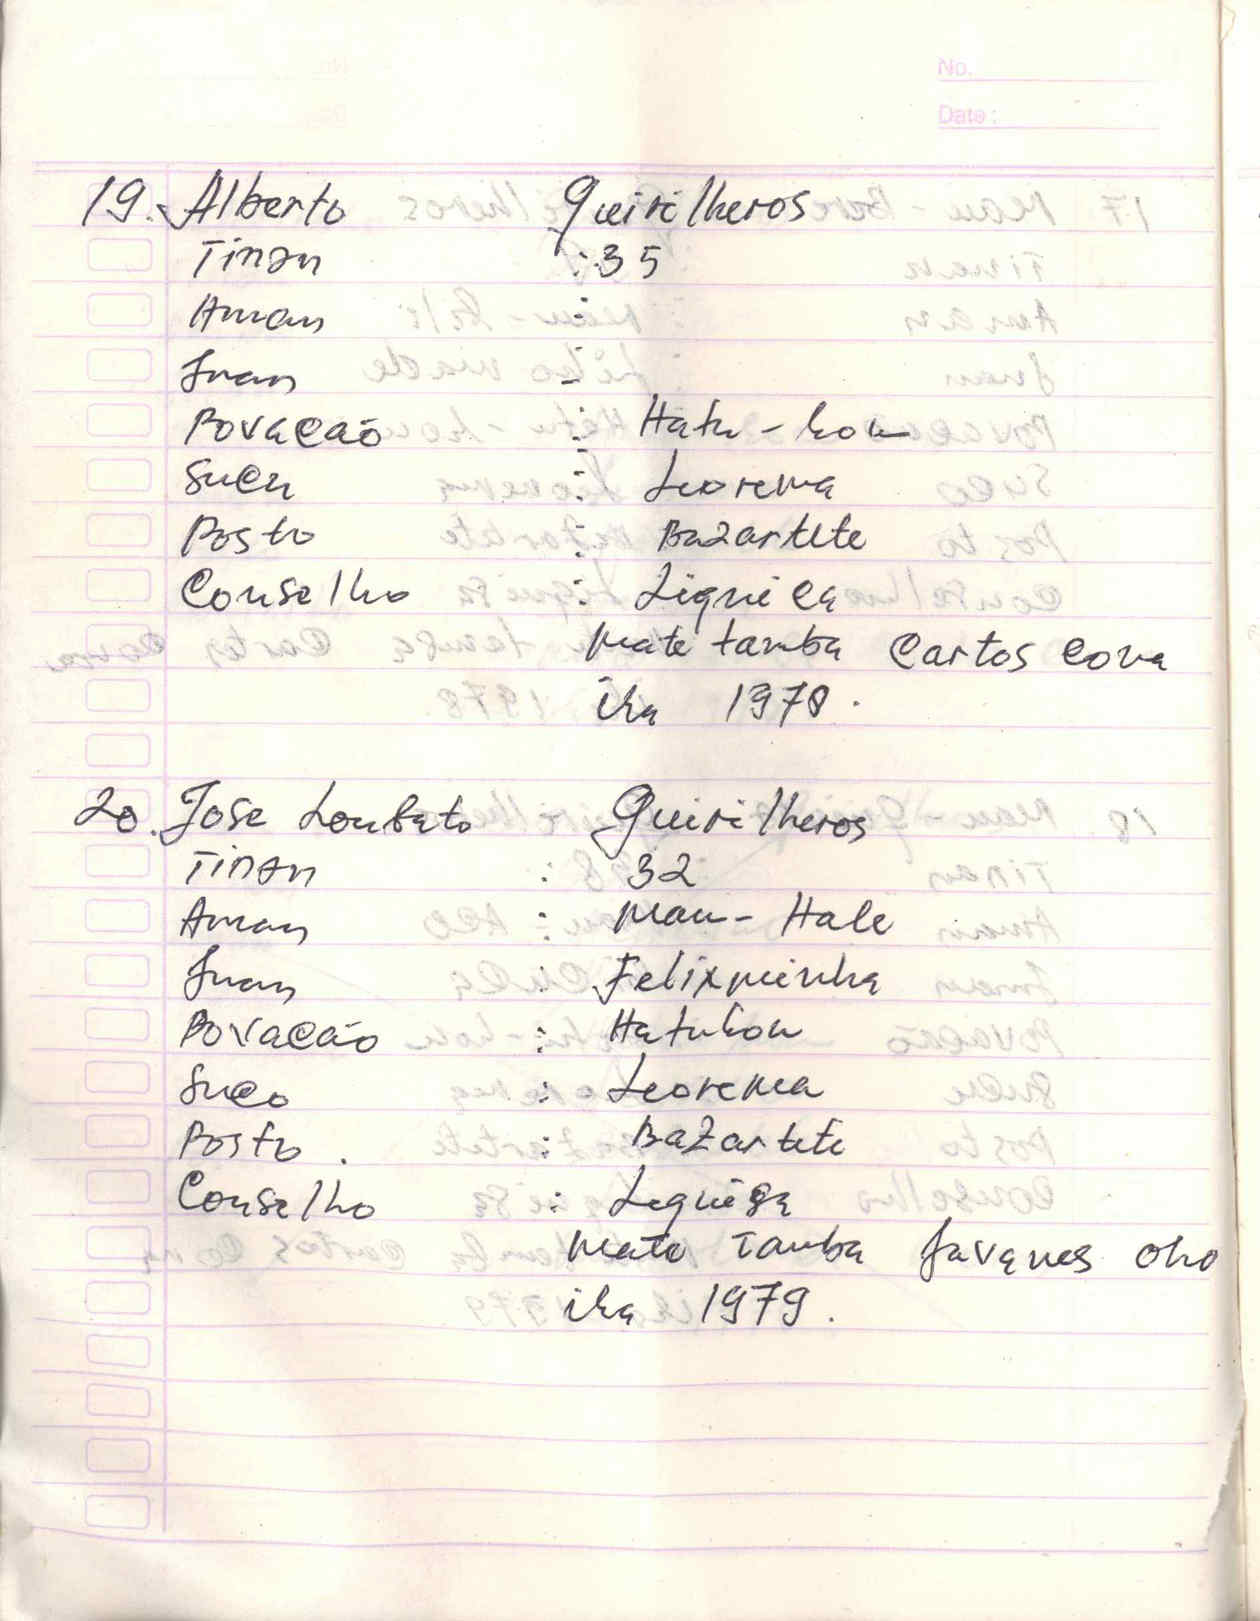 No.
Date :
19. Alberto Gueirilheros
Tinan : 35
Aman :
Inan -
Povacão : Hatu - hou
Sucu : Leorema
Posto : Bazartete
Conselho : Liquica
Mate tamba Cartos Cona
iha 1978.
20. Jose Loubato Gueirilheros
Tinan : 32
Aman : Mau - Hale
Inan : Felixminha
Povacão : Hatuhou
Suco : Leorema
Posto . : Bazartete
Conselho : Liquisa
Mate Tamba Javanes oho
iha 1979.